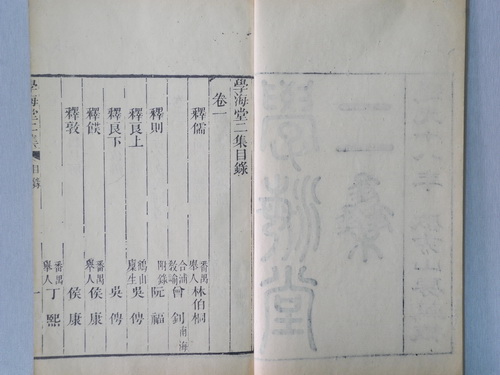 學海堂二集目錄
卷一
釋儒 番禺舉人 林伯桐
合浦教諭 曾釗 南海
釋則 阮福
釋良上 鶴山廩生 吳俜
釋良下 吳俜
釋 番禺舉人 侯康
釋敦 侯康
番禺舉人 丁熙
學海堂二集 目錄 一